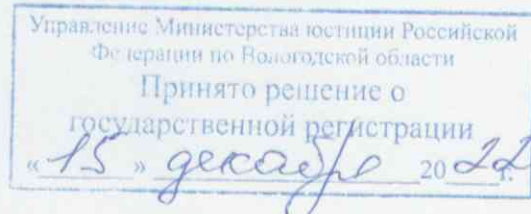 Управление Министерства юстиции Российской
Федерации по Вологодской области
Принято решение о
государственной регистрации
«15» декабря 2022 г.